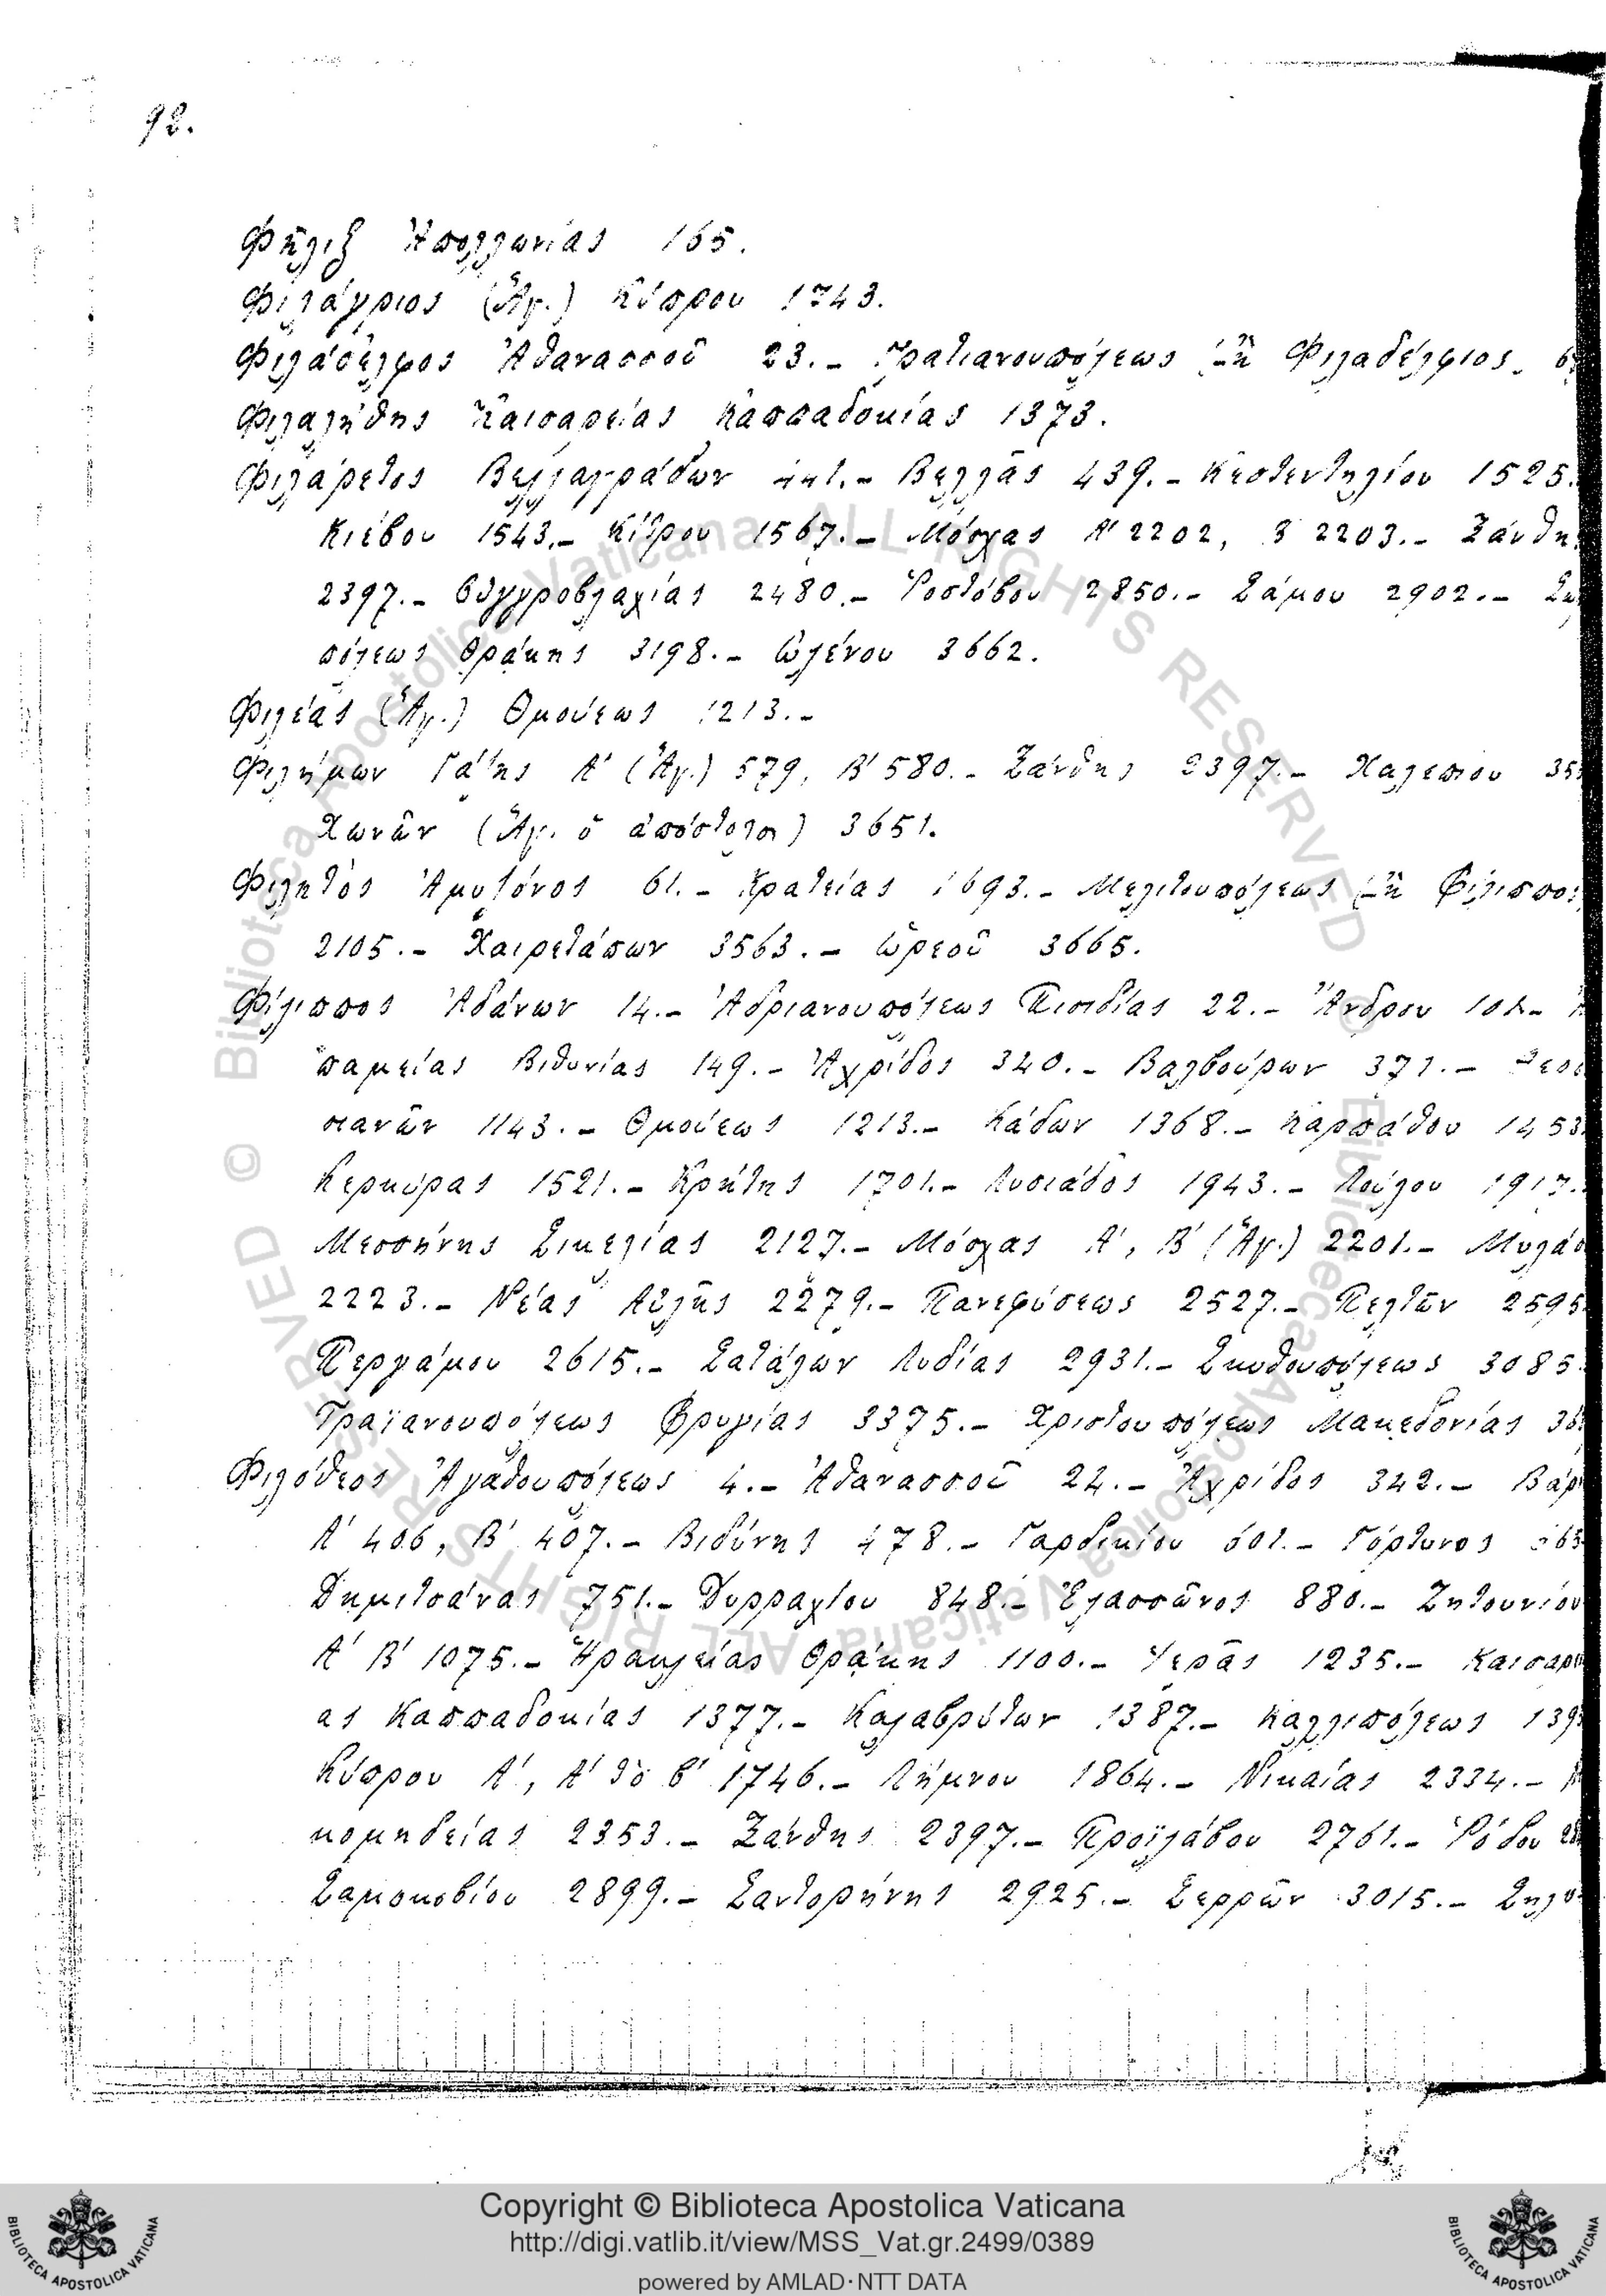 92.
Φῆλιξ Ἀπολλωνίας 165.
Φιλάγριος (Ἅγ.) Κύπρου 1743.
Φιλάδελφος Ἀθανασσοῦ 23.– Γρατιανουπόλεως ἢ Φιλαδέλφιος
Φιλαλήθης Καισαρείας Καππαδοκίας 1373.
Φιλάρετος Βελλαγράδων Βελλᾶς 439.– Κεστεντηλίου 1525.
Κιέβου 1543.– Κίτρου 1567.– Μόσχας Α΄ 2202, 2203.– Ξάνθη
2397.– Οὑγγροβλαχίας 2480.– Ῥοστόβου 2850.– Σάμου 2902.–
πόλεως Θράκης 3198.– Ὠλένου 3662.
Φιλέας (Ἅγ.) Θμούεως 1213.–
Φιλήμων Γάζης Α΄ (Ἅγ.) 579, Β΄ 580.– Ξάνθης 2397.– Χαλεπίου
Χωνῶν (Ἅγ. ὁ ἀπόστολος) 3651.
Φιλητὸς Ἀμυζόνος 61.– Κρατείας 1693.– Μελιτουπόλεως ἢ Φίλιππος
2105.– Χαιρετάπων 3563.– Ὠρεοῦ 3665.
Φίλιππος Ἀδάνων 14.– Ἀδριανουπόλεως Πισιδίας 22.– Ἄνδρου
παμείας Βιθυνίας 149.– Ἀχρίδος 340.– Βαλβούρων 371.–
πιανῶν 1143.– Θμούεως 1213.– Κάδων 1368.– Καρπάθου 1453
Κερκύρας 1521.– Κρήτης 1701.– Λυσιάδος 1943.– Λούλου
Μεσσήνης Σικελίας 2127.– Μόσχας Α΄, Β΄ (Ἅγ.) 2201.– Μυλάσ
2223.– Νέας Αὐλῆς 2279.– Πανεφύσεως 2527.– Πελτῶν 2595
Περγάμου 2615.– Σατάλων Λυδίας 2931.– Σκυθουπόλεως 3085
Τραϊανουπόλεως Φρυγίας 3375.– Χριστουπόλεως Μακεδονίας
Φιλόθεος Ἀγαθουπόλεως 4.– Ἀθανασσοῦ 24.– Ἀχρίδος 342.– Βάρ
Α΄ 406, Β΄ 407.– Βιδύνης 478.– Γαρδικίου 601.– Γόρτυνος
Δημιτσάνας 751.– Δυρραχίου 848.– Ἐλασσῶνος 880.– Ζητουνίου
Α΄ Β΄ 1075.– Ἡρακλείας Θράκης 1100.– Ἱερᾶς 1235.– Καισαρεί
ας Καππαδοκίας 1377.– Καλαβρύτων 1387.– Καλλιπόλεως
Κύπρου Α΄, Α΄ τὸ β΄ 1746.– Λήμνου 1864.– Νικαίας 2334.–
κομηδείας 2353.– Ξάνθης 2397.– Προϊλάβου 2761.– Ῥόδου
Σαμοκοβίου 2899.– Σαντορήνης 2925.– Σερρῶν 3015.– Σηλυ
© Biblioteca Apostolica Vaticana ALL RIGHTS RESERVED © Biblioteca Apostolica Vaticana ALL RIGHTS RESERVED
Copyright © Biblioteca Apostolica Vaticana
http://digi.vatlib.it/view/MSS_Vat.gr.2499/0389
powered by AMLAD·NTT DATA
BIBLIOTECA APOSTOLICA VATICANA
BIBLIOTECA APOSTOLICA VATICANA